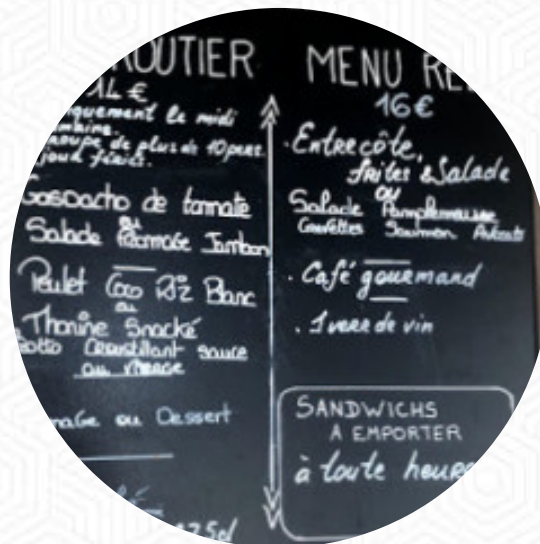 ROUTIER
14 €
uniquement le midi
semaine.
groupe de plus de 10 pers.
jours fériés.
Gaspacho de tomate
ou
Salade Fromage Jambon
Poulet Coco Riz Blanc
ou
Thonine Snacké
sotto Croustillant sauce
au vierge
mage ou Dessert
75cl
MENU RE
16€
. Entrecôte,
frites & Salade
ou
Salade Pamplemousse
Crevettes Saumon Avocats
. Café gourmand
. 1 verre de vin
SANDWICHS
A EMPORTER
à toute heure